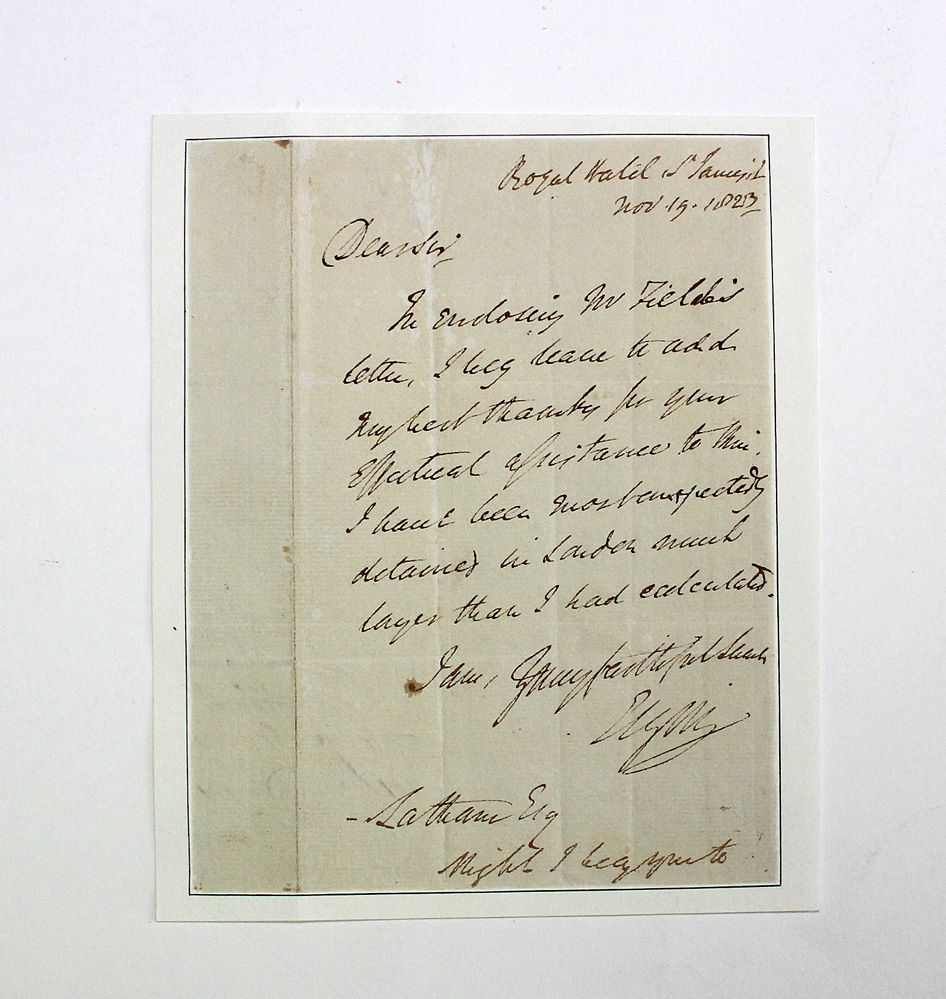 Royal Hotel St James's St
Nov 19. 1823
Dear Sir
In enclosing Mr Field's
letter, I beg leave to add
my best thanks for your
effectual assistance to him.
I have been most unexpectedly
detained in London much
longer than I had calculated.
I am, Your faithful Servt
Elgin
- Latham Esq
Might I beg you to